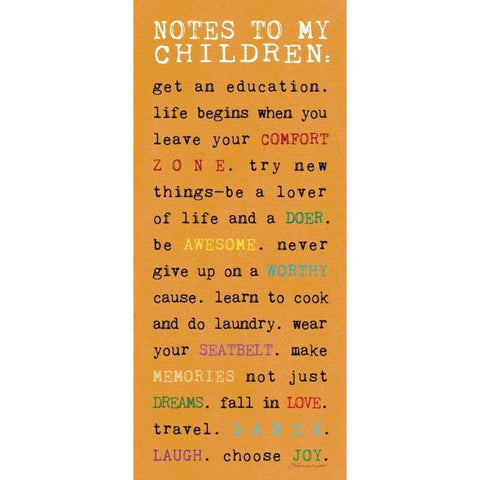 NOTES TO MY
CHILDREN:
get an education.
life begins when you
leave your COMFORT
ZONE. try new
things-be a lover
of life and a DOER.
be AWESOME. never
give up on a WORTHY
cause. learn to cook
and do laundry. wear
your SEATBELT. make
MEMORIES not just
DREAMS. fall in LOVE.
travel. DANCE.
LAUGH. choose JOY.